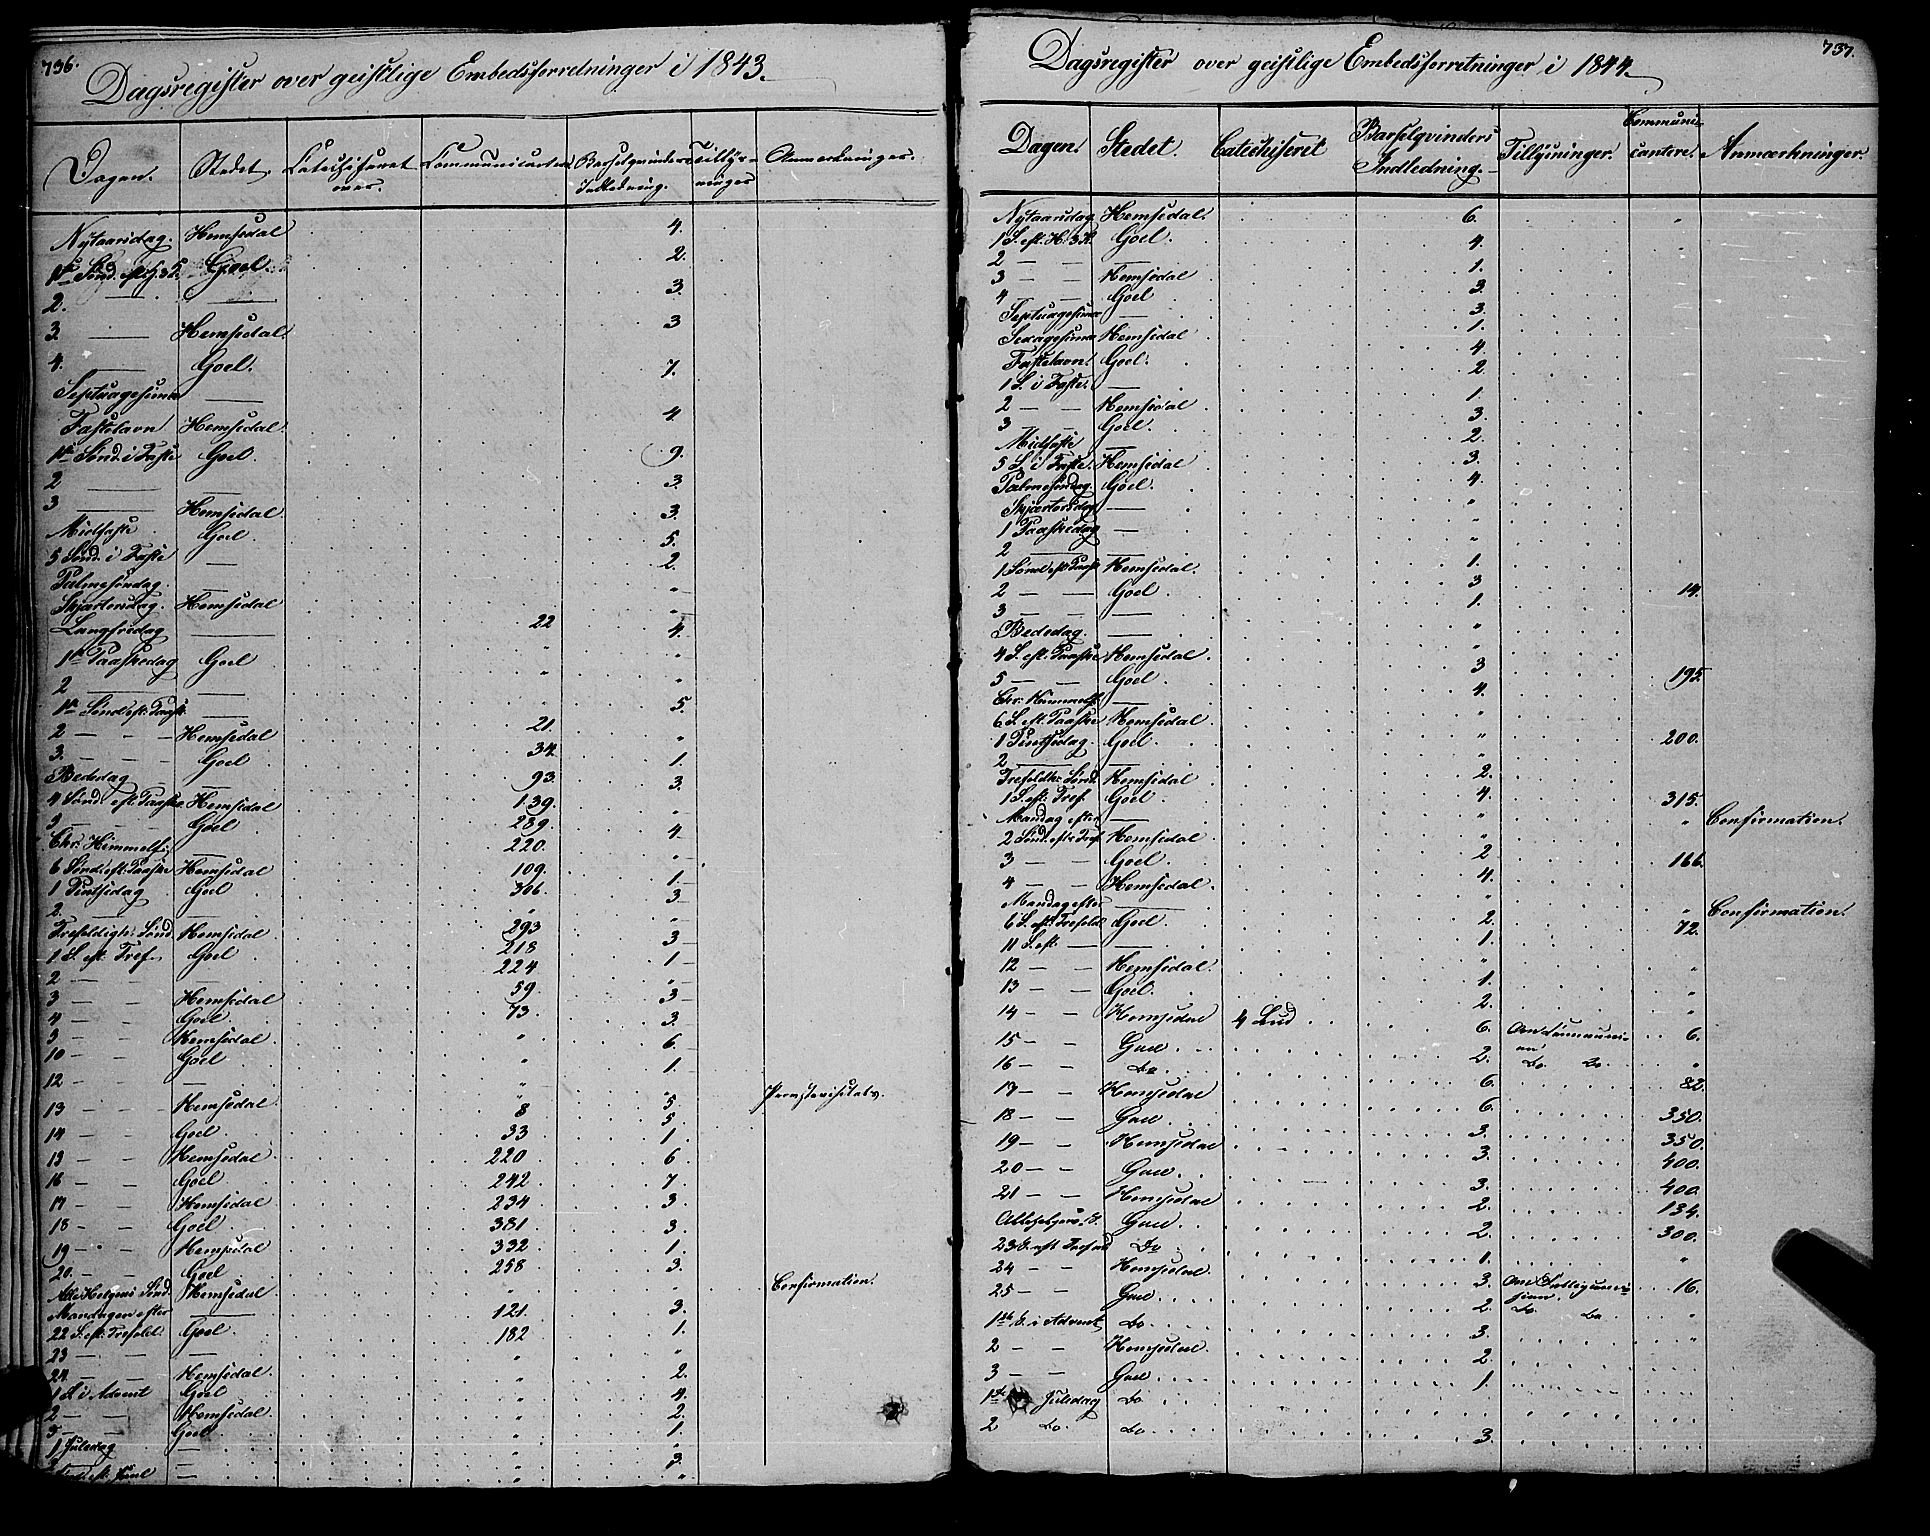 736.
Dagsregister over geistlige Embedsforretninger i 1843.
Dagen. Stedet. Catechiseret over. Communicantere Barselqvinders Indledning. Tillysninger Anmærkninger.
Nytaarsdag. Hemsedal 4.
1ste Sønd. eft. H. 3 K. Goel. 2.
2. — — 3.
3. — Hemsedal. 3
4. — Goel. 7.
Septuagesima —
Fastelavn Hemsedal. 4
1ste Sønd. i Faste Goel. 9.
2 — — 3.
3 — Hemsedal. 3.
Midfaste Goel. 5.
5 Sønd. i Faste — 2.
Palmesøndag. "
Skjærtorsdag. Hemsedal "
Langfredag — 22 4.
1ste Paaskedag Goel " "
2 — — " "
1ste Sønd. eft. Paask. — " 5.
2 — — Hemsedal 21. "
3. — — Goel 34. 1.
Bededag — 93. 3.
4 Sønd. eft. Paaske Hemsedal 139. "
— — Goel 289. 4
Chr. Himmelf. — 220. "
6 Sønd. eft. Paaske Hemsedal 109. 1
1 Pintsedag Goel 306. 3
2. — — " "
Trefoldigh. Sønd. Hemsedal 293 3
1 S. eft. Tref. Goel 218 1
2 — — — 224 "
3 — — Hemsedal 59. 3
4 — — Goel. 73. 3.
— — Hemsedal. " 6.
10 — — Goel " 1.
12 — — — " "
13 — — Hemsedal. 8 5. Prostevisitats.
14 — — Goel. 33 5.
— — Hemsedal. 220 1.
16 — — Goel 242 6
17 — — Hemsedal 234 7
18 — — Goel 381 3
19 — — Hemsedal 332 3.
20. — — Goel 258 1.
Alle Helgens Sønd. Hemsedal " 3. Confirmation.
Mandagen efter — 121. 3.
22 S. eft. Trefold. Goel. 182 1.
23 — — — " "
24 — — Hemsedal. " 2.
1 S. i Advent Goel " 4.
2 — — Hemsedal. " 2.
3 — — Goel " 1.
1 Juledag — " "
— " 3.
737.
Dagsregister over geistlige Embedsforretninger i 1844.
Dagen. Stedet. Catechiseret Barselqvinders Indledning. Tillysninger. Communicantere. Anmærkninger.
Nytaarsdag. Hemsedal. 6. "
1 S. eft. H. 3 K. Goel. 4. "
2 — — — 1.
3 — — Hemsedal 3.
4 — Goel 3.
Septuagesima — 1.
Sexagesima Hemsedal 4.
Fastelavn. Goel. 2.
1 S. i Faste. — 1.
2 — — Hemsedal 3.
3 — — Goel. 2.
Midfaste — 3.
5 S. i Faste. Hemsedal 4.
Palmesøndag. Goel. "
Skjærtorsdag — "
1 Paaskedag — "
2 — — 1.
1 Sønd. eft. Paask. Hemsedal. 3
2 — — Goel 1. 14.
3 — — — "
Bededag. — "
4 S. eft. Paaske Hemsedal 3
5 — — Goel 4. 195.
Chr. Himmelf. — "
6 S. eft. Paaske Hemsedal "
1 Pintsedag. Goel. " 200.
2 — — 2.
Trefoldh. Sønd. Hemsedal 4.
1 S. eft. Tref. Goel " 315.
Mandag efter — " " Confirmation.
2 Sønd. eft. Tref. Hemsedal 2
3 — — Goel 4. 166.
4 — — Hemsedal. "
Mandag efter — 2. " Confirmation.
6 S. eft. Trefold. Goel 1. 72.
11 S. eft. — — "
12 — — Hemsedal. 1. "
13 — — Goel. 2. "
14 — — Hemsedal 4 Bud 6. Om Communion "
15 — — Goel 2. Do. Do. 6.
16 — — Do. 6. "
17 — — Hemsedal 6. 82.
18 — — Goel 3. 350.
19 — — Hemsedal 3. 350.
20 — — Goel 3. 400.
21 — — Hemsedal 2. 400.
Allehelgens S. Goel 2. 134.
23 S. eft. Trefold. Do 1. 300.
24 — — Hemsedal. 3. "
25 — — Goel 2. 16.
1ste S. i Advent Do. Do. Do. 3. "
2 — — Hemsedal. 2 "
3 — — Goel 1.
1ste Juledag Do.
2 Do. Do. 3.